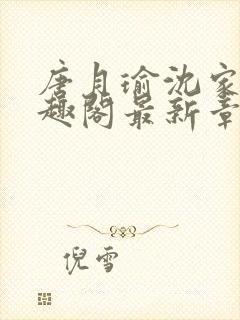 唐月瑜沈家
趣阁最新章
倪雪